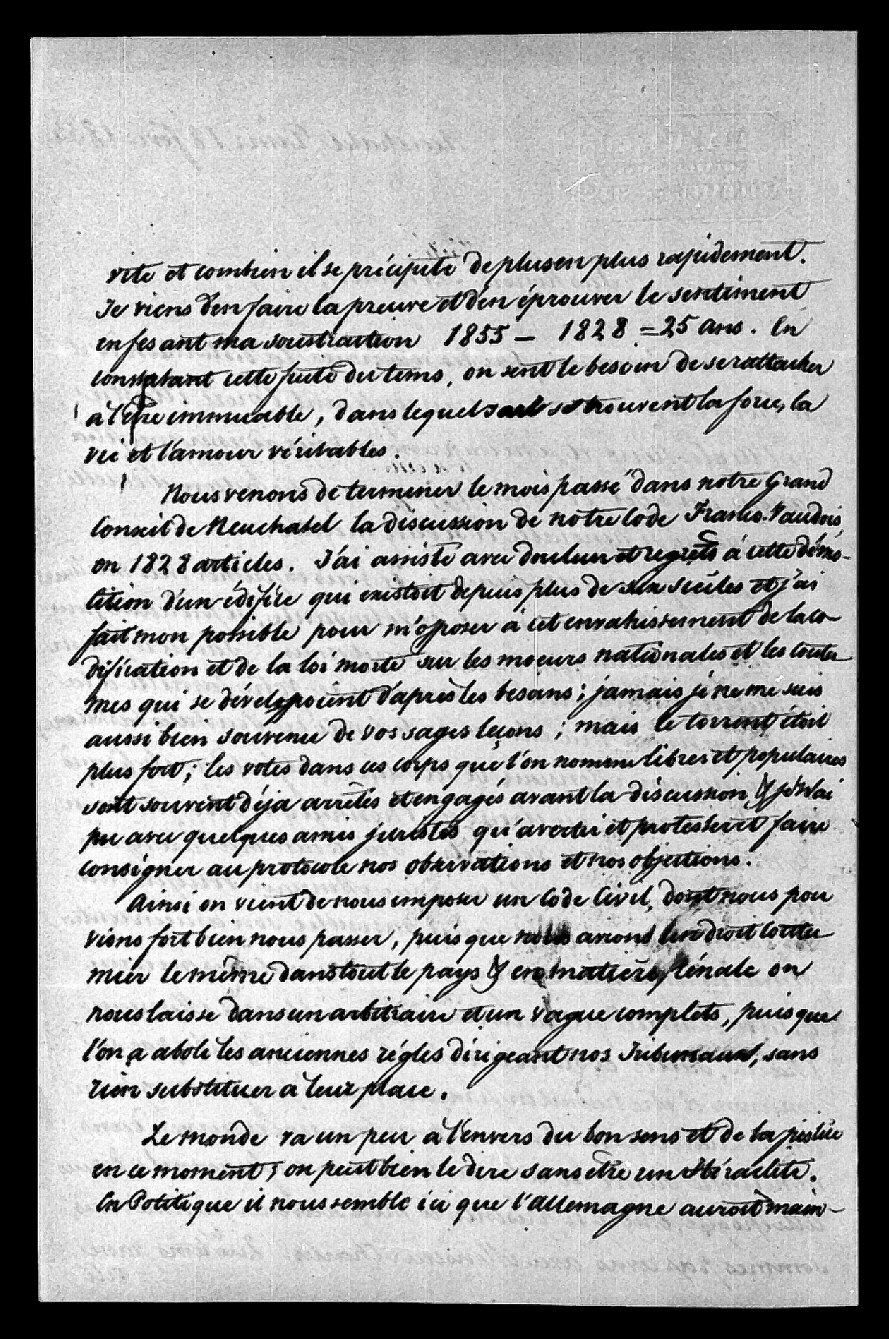 vite et combien il se précipite de plus en plus rapidement.
Je viens d'en faire la preuve et d'en éprouver le sentiment
en fesant ma soustraction 1855 — 1828 = 25 ans. En
constatant cette fuite du tems, on sent le besoin de se rattacher
à l'être immuable, dans lequel se trouvent la force, la
vie et l'amour véritables.
Nous venons de terminer le mois passé dans notre Grand
Conseil de Neuchatel la discussion de notre Code Franco-Vaudois,
en 1828 articles. J'ai assisté avec douleur et regrets à cette démo-
lition d'un édifice qui existoit depuis plus de six siècles et j'ai
fait mon possible pour m'opposer à cet envahissement de la co-
dification et de la loi morte sur les moeurs nationales et les coutu-
mes qui se développoient d'après les besoins; jamais je ne me suis
aussi bien souvenu de vos sages leçons; mais le torrent étoit
plus fort; les votes dans ces corps que l'on nomme libres et populaires
sont souvent déja arrêtés et engagés avant la discussion & je n'ai
pu avec quelques amis juristes qu'avertir et protester et faire
consigner au protocole nos observations et nos objections.
Ainsi on vient de nous imposer un Code Civil, dont nous pou
vions fort bien nous passer, puis que nous avions un droit coutu
mier le même dans tout le pays & en matière pénale on
nous laisse dans un arbitraire et un vague complets, puis que
l'on a aboli les anciennes régles dirigeant nos Tribunaux, sans
rien substituer à leur place.
Le monde va un peu à l'envers du bon sens et de la justice
en ce moment; on peut bien le dire sans être un Héraclite.
En Politique il nous semble ici que l'Allemagne auroit main-